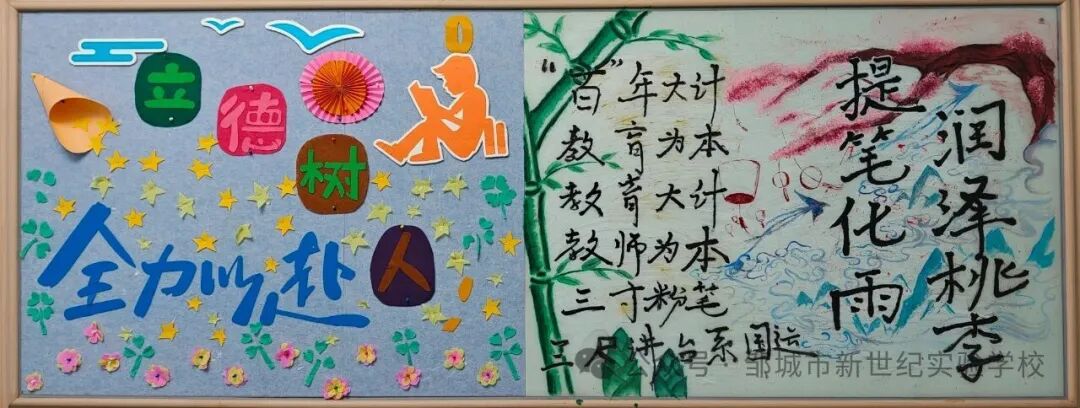 立德树人
全力以赴
“百”年大计
教育为本
教育大计
教师为本
三寸粉笔
三尺讲台系国运
提笔化雨
润泽桃李
公众号 · 邹城市新世纪实验学校